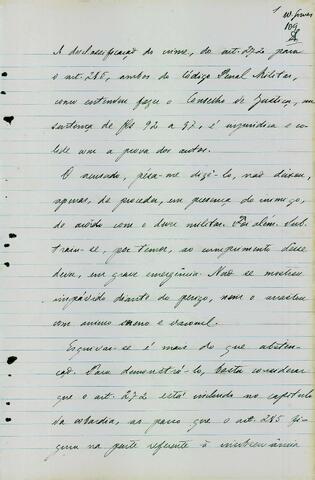 1
109
A desclassificação do crime, do art. 272 para
o art. 285, ambos do Código Penal Militar,
como entendeu fazer o Conselho de Justiça, na
sentença de fls 92 a 97, é injurídica e co-
lide com a prova dos autos.
O acusado, pesa-me dizê-lo, não deixou,
apenas, de proceder, em presença do inimigo,
de acôrdo com o dever militar. Foi além. Sub-
traiu-se, por temor, ao cumprimento dêsse
dever, em grave emergência. Não se mostrou
impávido diante do perigo, nem o arrostou
com animo sereno e varonil.
Esquivar-se é mais do que absten-
ção. Para demonstrá-lo, basta considerar
que o art. 272 está incluido no capitulo
da cobardia, ao passo que o art. 285 fi-
gura na parte referente à inobservância